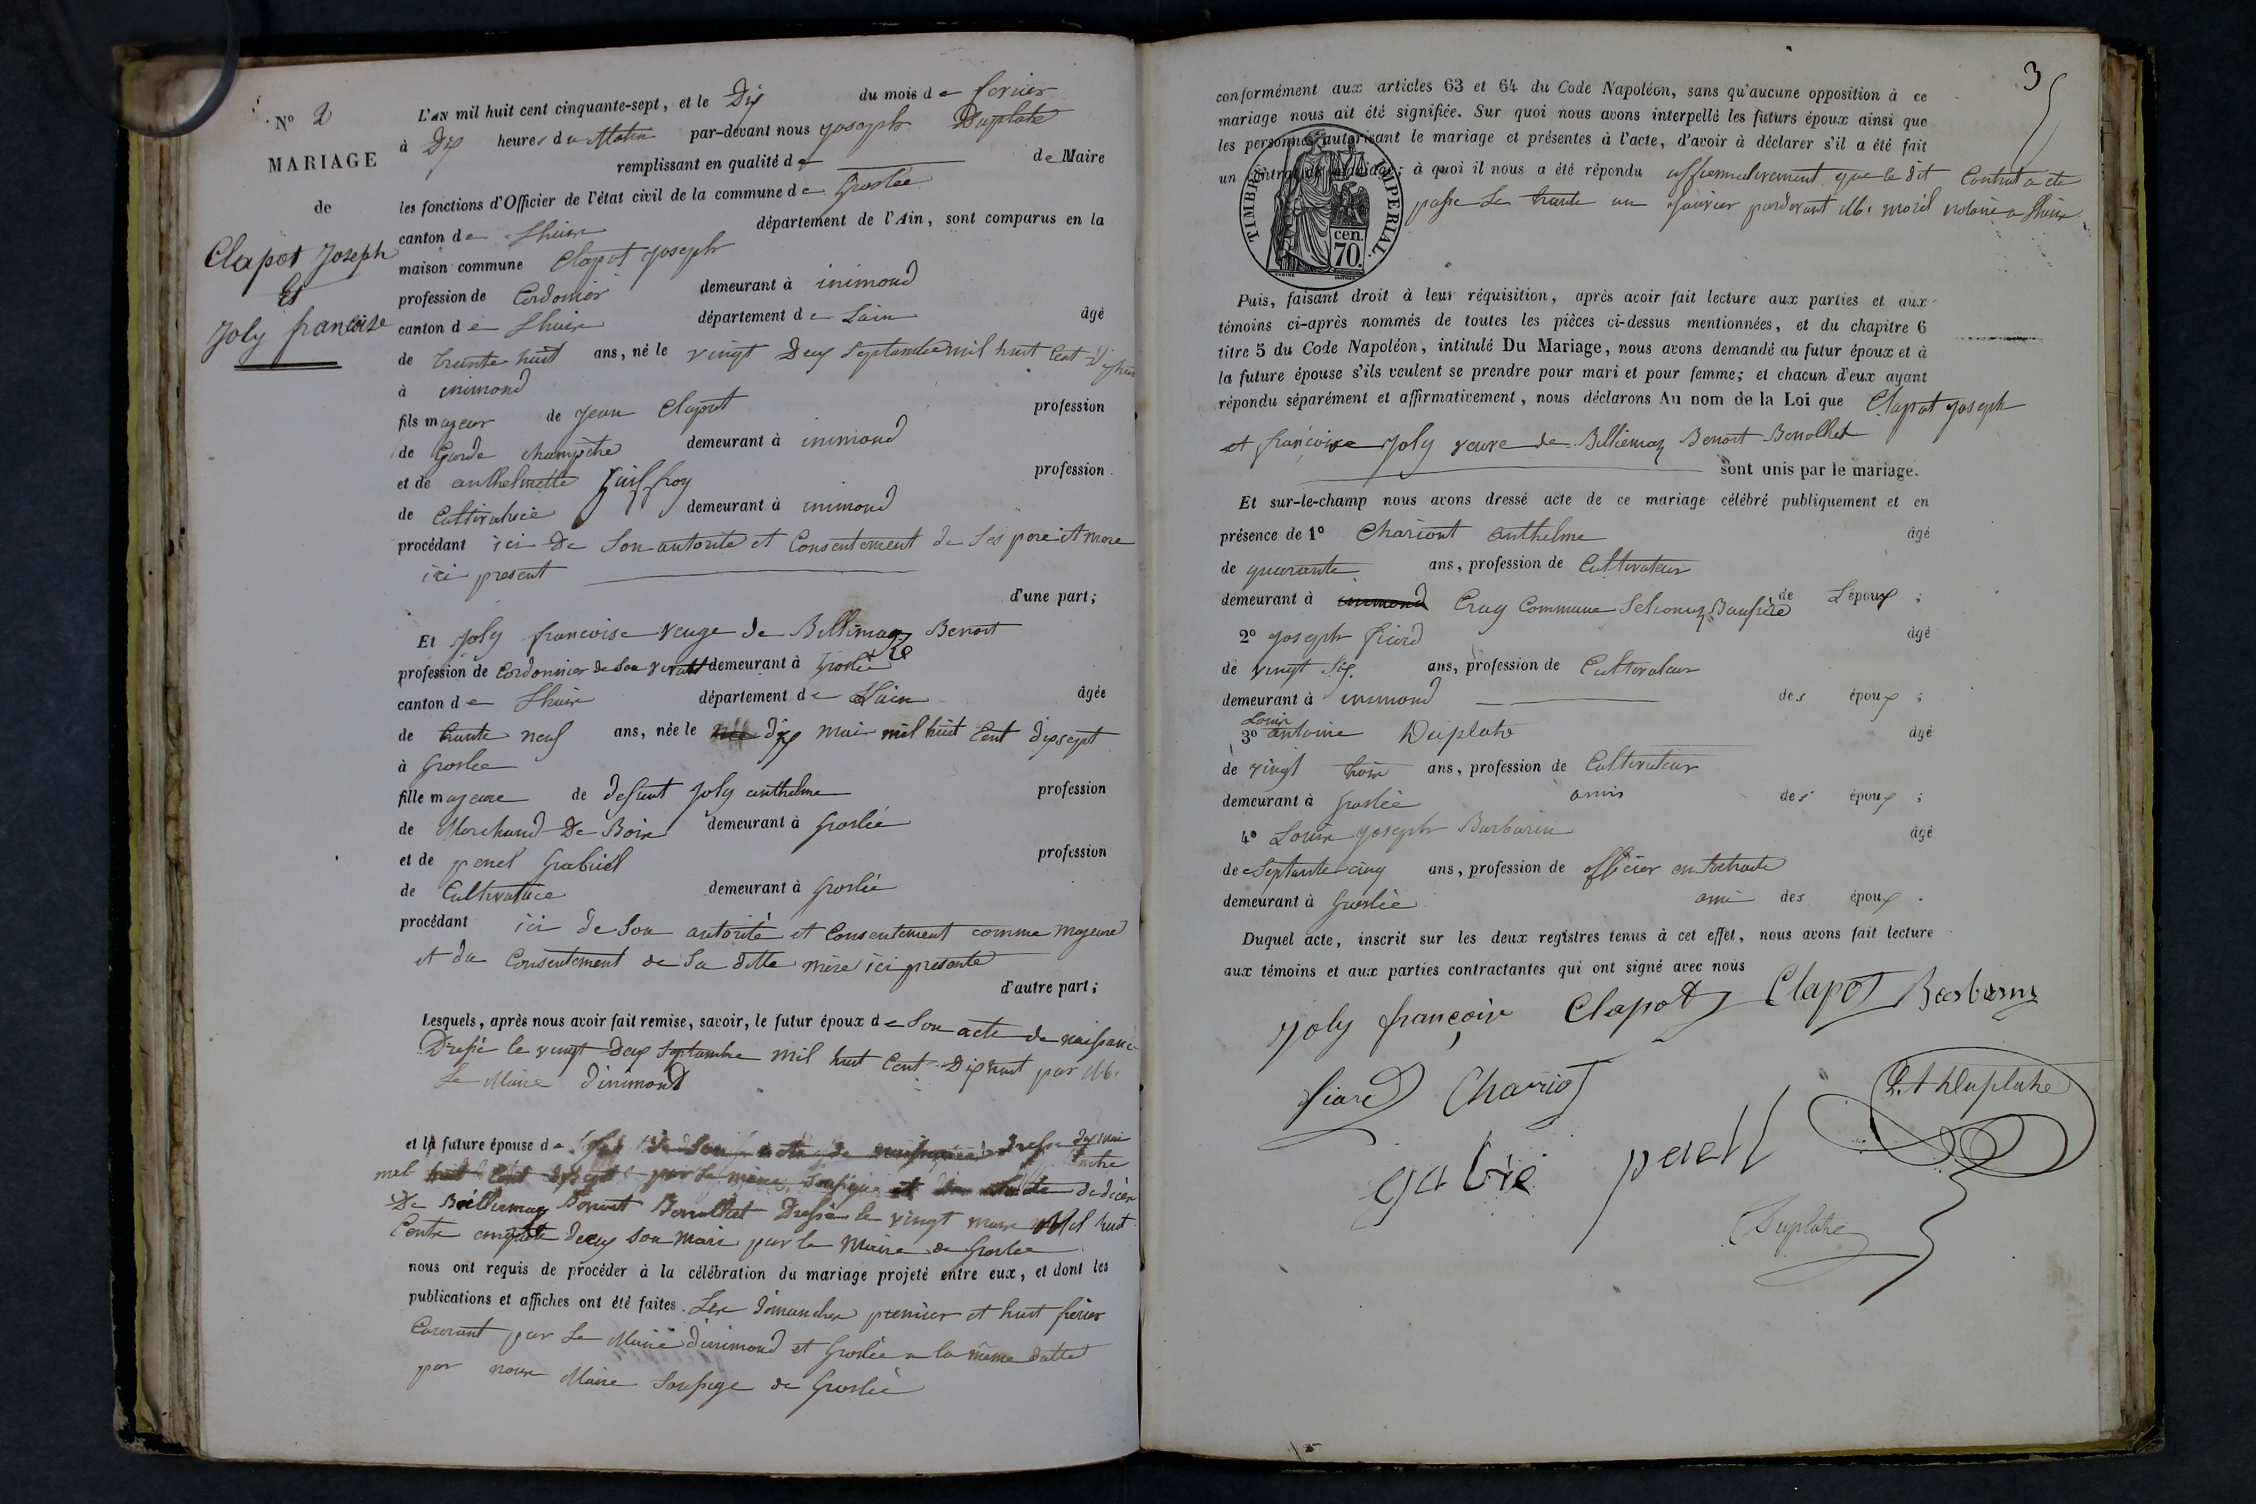 N° 2
MARIAGE
de
Clapot Joseph
Et
Joly françoise
L'AN mil huit cent cinquante-sept, et le Dix du mois de fevrier
à Dix heures du Matin par-devant nous joseph Duplatre
remplissant en qualité de de Maire
les fonctions d'Officier de l'état civil de la commune de Groslée
canton de Lhuis département de l'Ain, sont comparus en la
maison commune Clapot joseph
profession de Cordonier demeurant à inimond
canton de Lhuis département de Lain âgé
de trente huit ans, né le vingt Deux Septembre mil huit Cent Dixhuit
à inimond
fils majeur de jean Clapot profession
de Garde champètre demeurant à inimond
et de anthelmette Juiffroy profession
de Cultivatrice demeurant à inimond
procédant ici De Son autorité et Consentement de Ses pere et mere
ici present
d'une part;
Et Joly francoise veuve de Billiemaz Benoit
profession de Cordonnier de Son vivant demeurant à Groslée
canton de Lhuis département de Lain âgée
de trente neuf ans, née le dix mai mil huit Cent dixsept
à Groslee
fille majeure de defunt Joly anthelme profession
de Marchand De Bois demeurant à Groslée
et de penel Gabriel profession
de Cultivatrice demeurant à Groslée
procédant ici de Son autorité et Consentement comme majeure
et du Consentement de Sa ditte mère ici presente
d'autre part;
Lesquels, après nous avoir fait remise, savoir, le futur époux de Son acte de naissance
Dressé le vingt Deux Septembre mil huit Cent Dixhuit par M.
Le Maire d'inimond
et la future épouse de Son acte de naissance dressé dix mai
mil huit Cent dixsept par Le maire et de décès
De Billiemaz Benoit Benollliet Dressé le vingt mars Mil huit
Cent cinquante deux son mari par le Maire de Groslee
nous ont requis de procéder à la célébration du mariage projeté entre eux, et dont les
publications et affiches ont été faites Les dimanches premier et huit fevrier
Courant par Le Maire d'inimond et Groslée a la même datte
par nous Maire Soussigné de Groslée
3
conformément aux articles 63 et 64 du Code Napoléon, sans qu'aucune opposition à ce
mariage nous ait été signifiée. Sur quoi nous avons interpellé les futurs époux ainsi que
les personnes autorisant le mariage et présentes à l'acte, d'avoir à déclarer s'il a été fait
un contrat de mariage; à quoi il nous a été répondu affirmativement que le dit Contrat a été
passe Le trente un Janvier pardevant M. morel notaire a Lhuis
TIMBRE IMPERIAL.
cen.
70.
Puis, faisant droit à leur réquisition, après avoir fait lecture aux parties et aux
témoins ci-après nommés de toutes les pièces ci-dessus mentionnées, et du chapitre 6
titre 5 du Code Napoléon, intitulé Du Mariage, nous avons demandé au futur époux et à
la future épouse s'ils veulent se prendre pour mari et pour femme; et chacun d'eux ayant
répondu séparément et affirmativement, nous déclarons Au nom de la Loi que Clapot joseph
et françoise Joly veuve de Billiemaz Benoit Benolliet
sont unis par le mariage.
Et sur-le-champ nous avons dressé acte de ce mariage célébré publiquement et en
présence de 1° Chariont Anthelme âgé
de quarante ans, profession de Cultivateur
demeurant à inimond Cray Commune Selonnaz Baufrère de L'époux ;
2° joseph ficard âgé
de vingt Six ans, profession de Cultivateur
demeurant à inimond des époux ;
3° Louis antoine Duplatre âgé
de vingt trois ans, profession de Cultivateur
demeurant à Groslée amis des époux ;
4° Louis joseph Barbarin âgé
de Septante cinq ans, profession de officier en retraite
demeurant à Groslée ami des époux .
Duquel acte, inscrit sur les deux registres tenus à cet effet, nous avons fait lecture
aux témoins et aux parties contractantes qui ont signé avec nous
Joly françoise Clapot Clapot Barbarin
ficard Chariot L. A Duplatre
gabrie penell
Duplatre